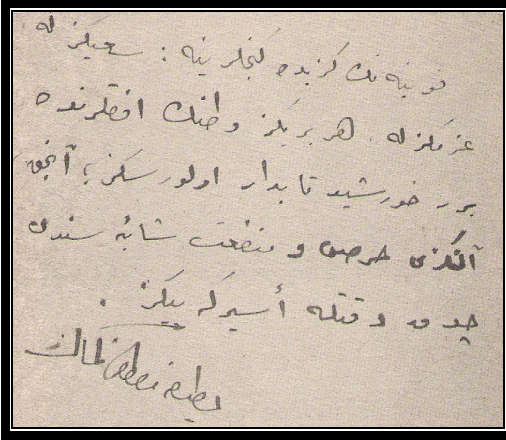 قونیه نك كزیده كنجلرینه : سعیكزله
عزمكزله هر بریكز وطنك افقلرنده
برر خورشید تابدار اولورسكز ؛ آنجق
آنلری حرص و منفعت شائبه سندن
چوق دقتله أسیركه ییكز .
مصطفی كمال